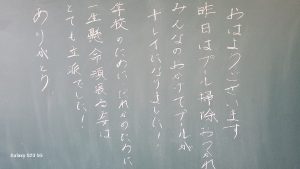 おはようございます
昨日はプール掃除おつかれ
みんなのおかげでプールが
キレイになりました！
学校のために、だれかのために
一生懸命頑張る姿は
とても立派でした！
ありがとう
Galaxy S23 5G